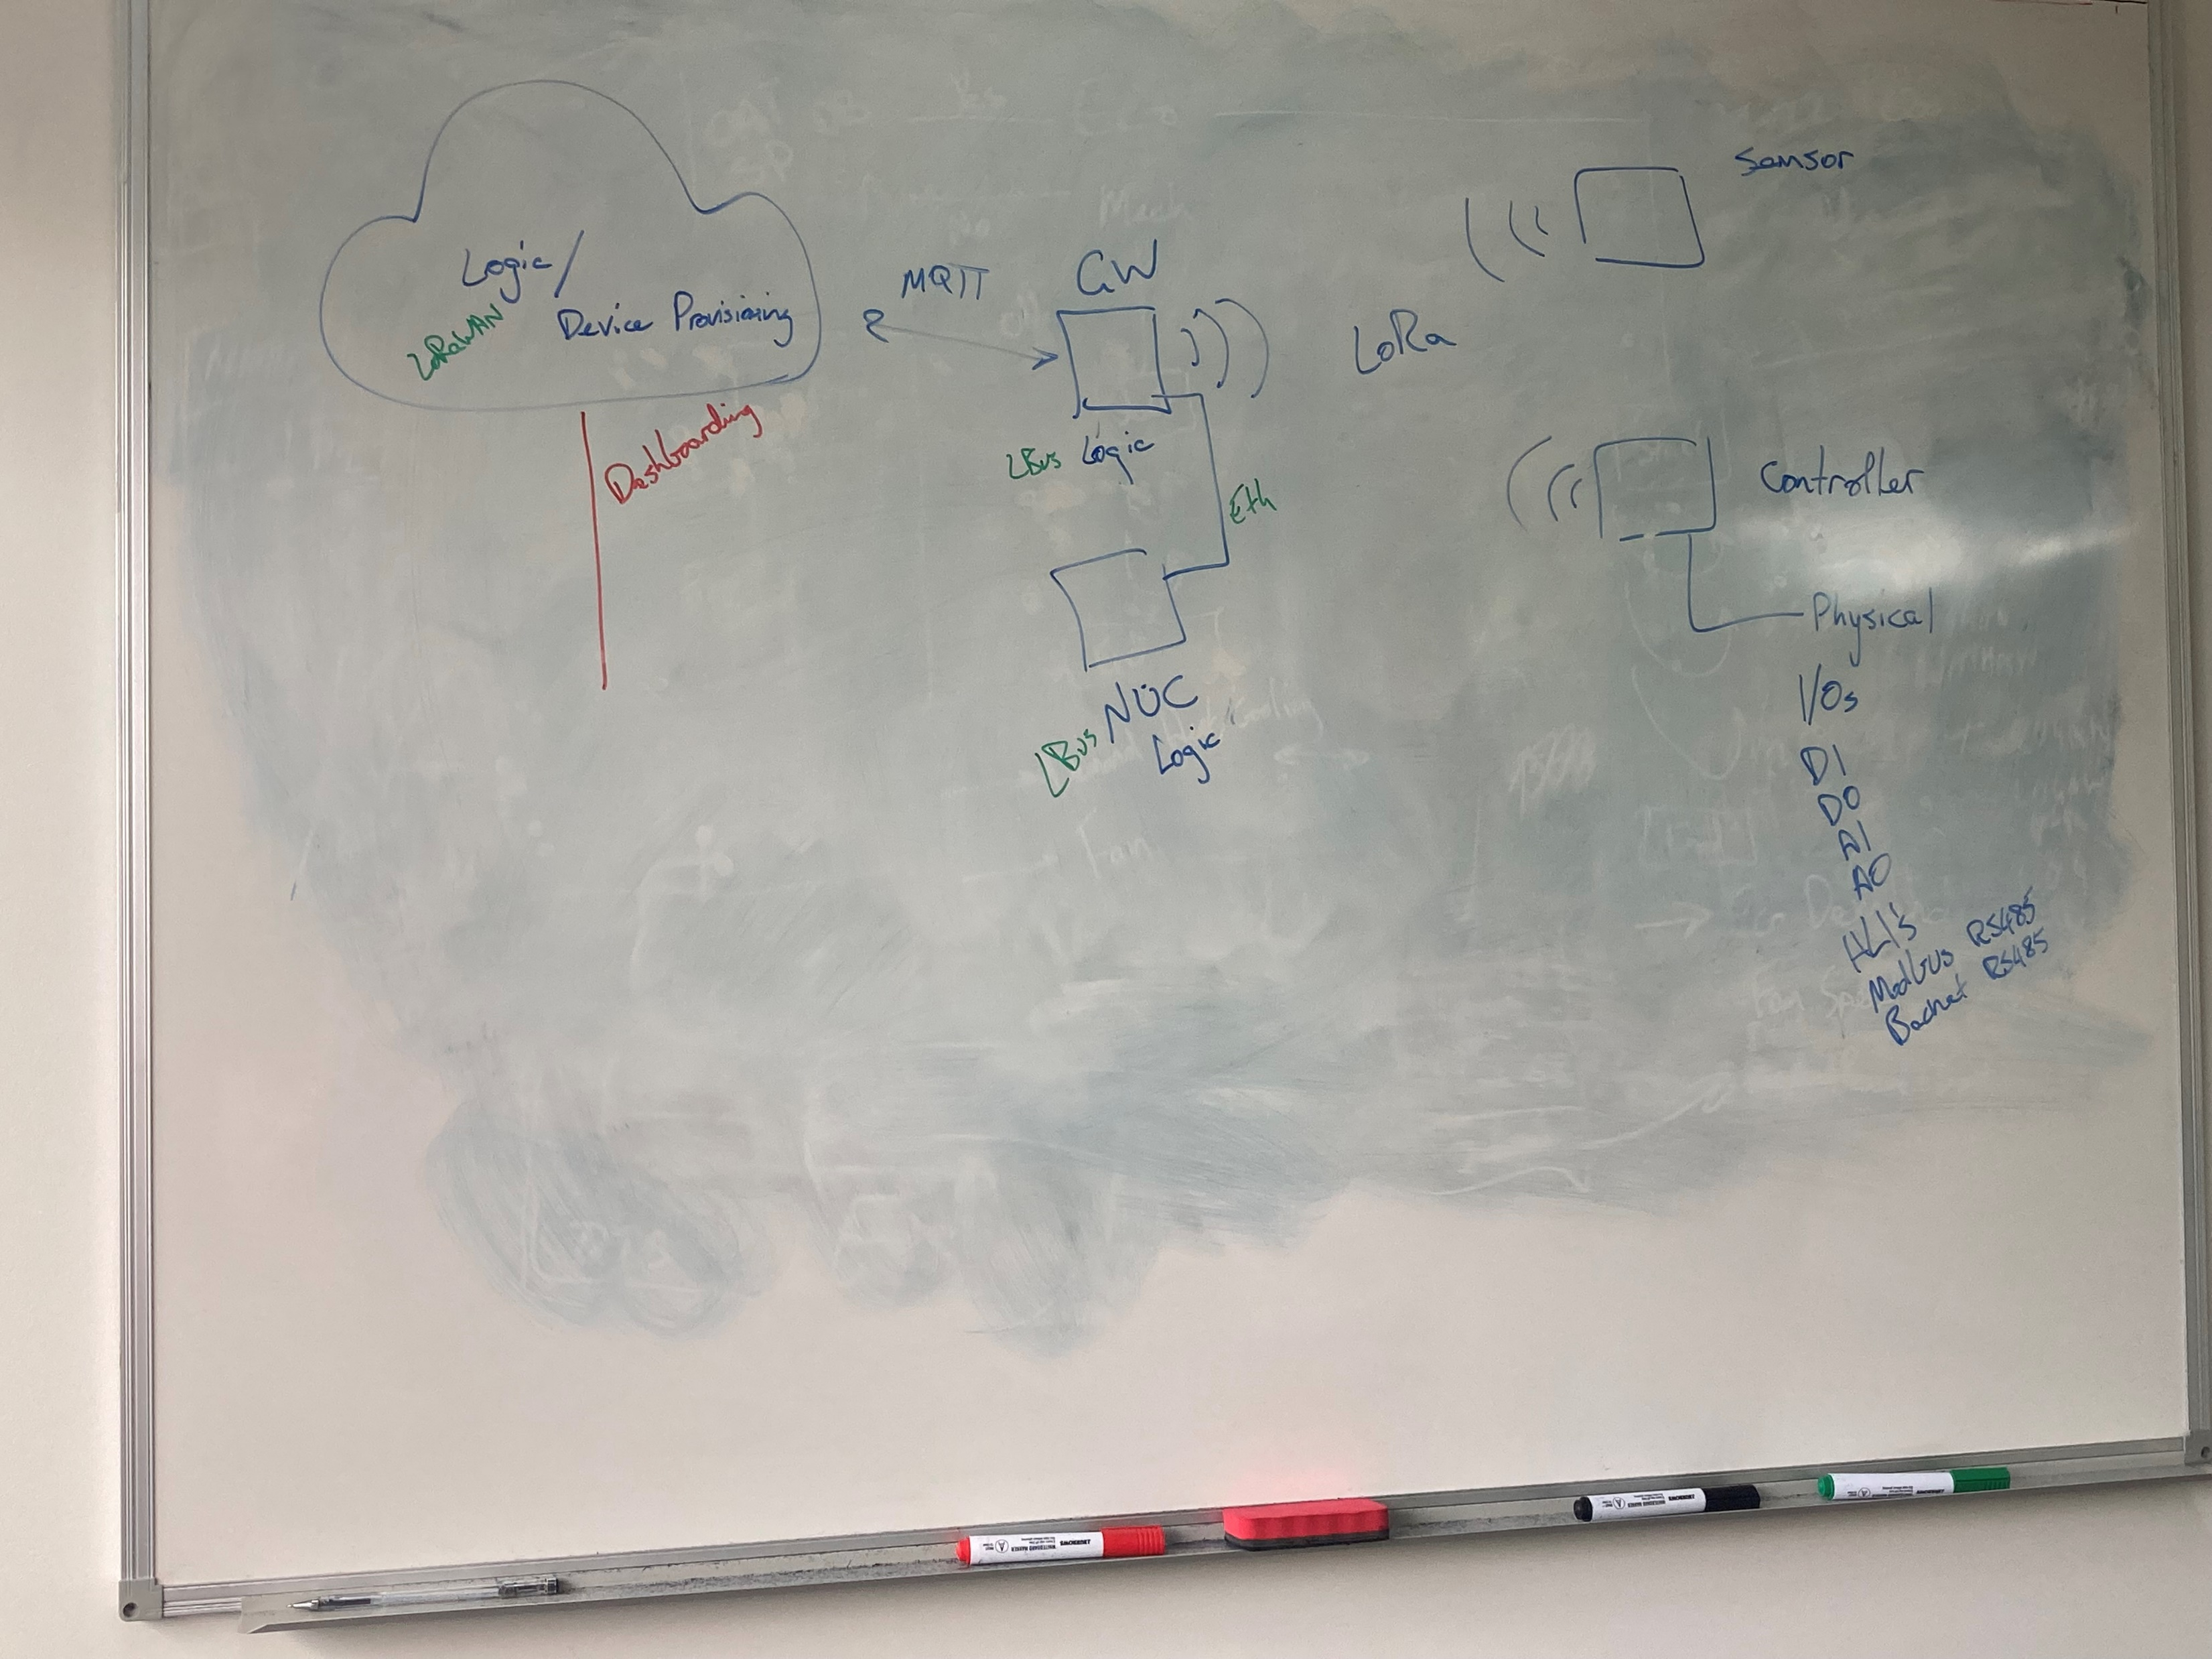 Logic/
LoRaWAN
Device Provisioning
Dashboarding
MQTT
GW
LBus Logic
Eth
NUC
LBus Logic
LoRa
Sensor
Controller
Physical
I/Os
DI
DO
AI
AO
HLI's
Modbus RS485
Bacnet RS485
Mech
Fan
WHITEBOARD MARKER